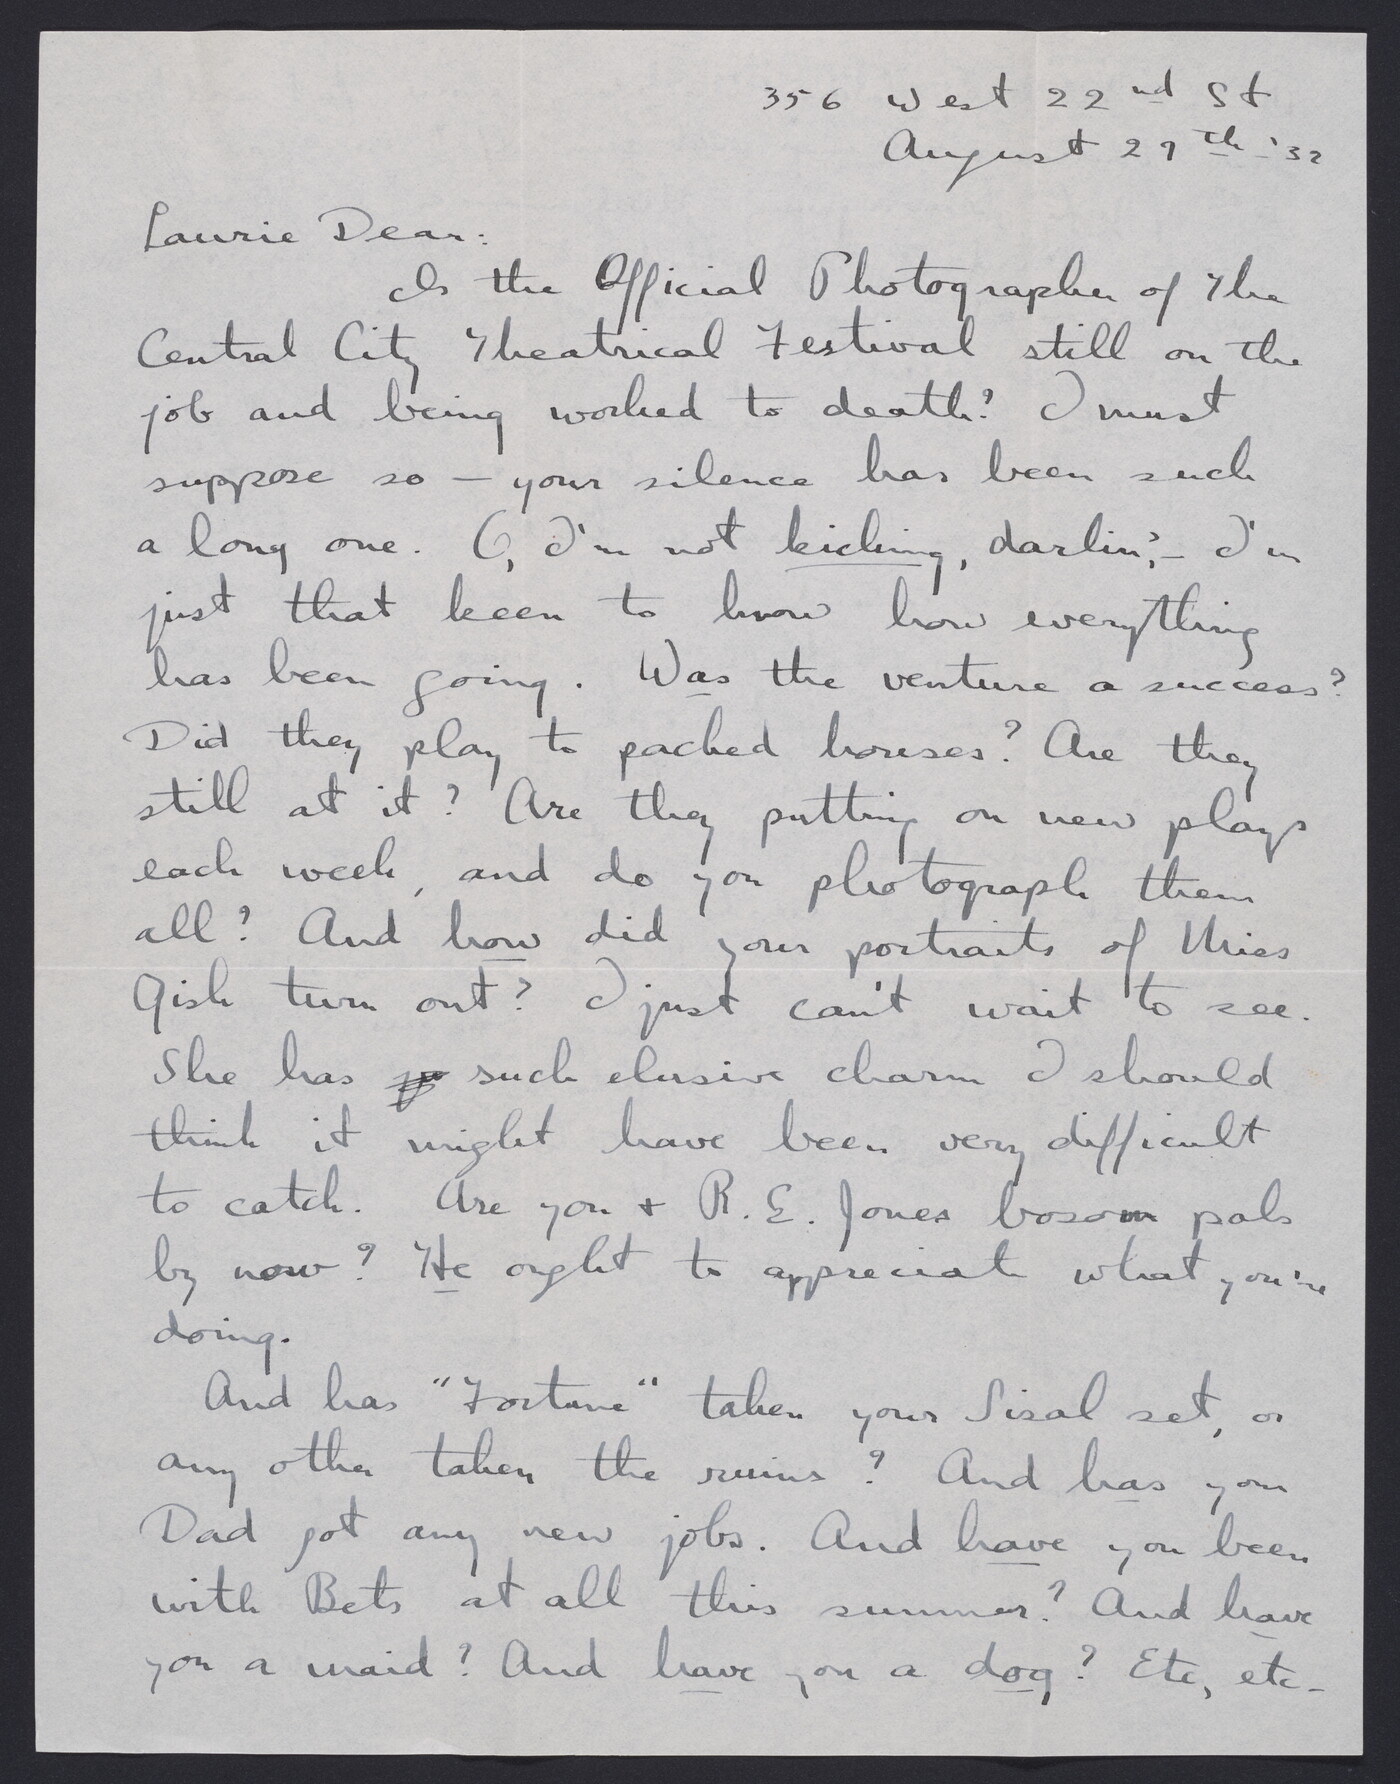 356 West 22nd St
August 27th - '32
Laurie Dear:
Is the Official Photographer of The
Central City Theatrical Festival still on the
job and being worked to death? I must
suppose so — your silence has been such
a long one. O, I'm not kicking, darlin', — I'm
just that keen to know how everything
has been going. Was the venture a success?
Did they play to packed houses? Are they
still at it? Are they putting on new plays
each week, and do you photograph them
all? And how did your portraits of Miss
Gish turn out? I just can't wait to see.
She has such elusive charm I should
think it might have been very difficult
to catch. Are you + R. E. Jones bosom pals
by now? He ought to appreciate what you're
doing.
And has "Fortune" taken your Sisal set, or
any other taken the ruins? And has your
Dad got any new jobs. And have you been
with Bets at all this summer? And have
you a maid? And have you a dog? Etc, etc -